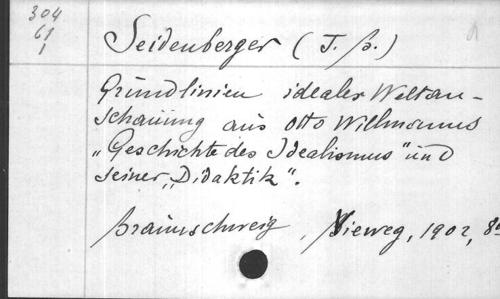 304
61
1
Seidenberger (J. B.)
Grundlinien idealer Weltan-
schauung aus Otto Willmanns
„Geschichte des Idealismus" und
seiner „Didaktik".
Braunschweig, Vieweg, 1902, 8°